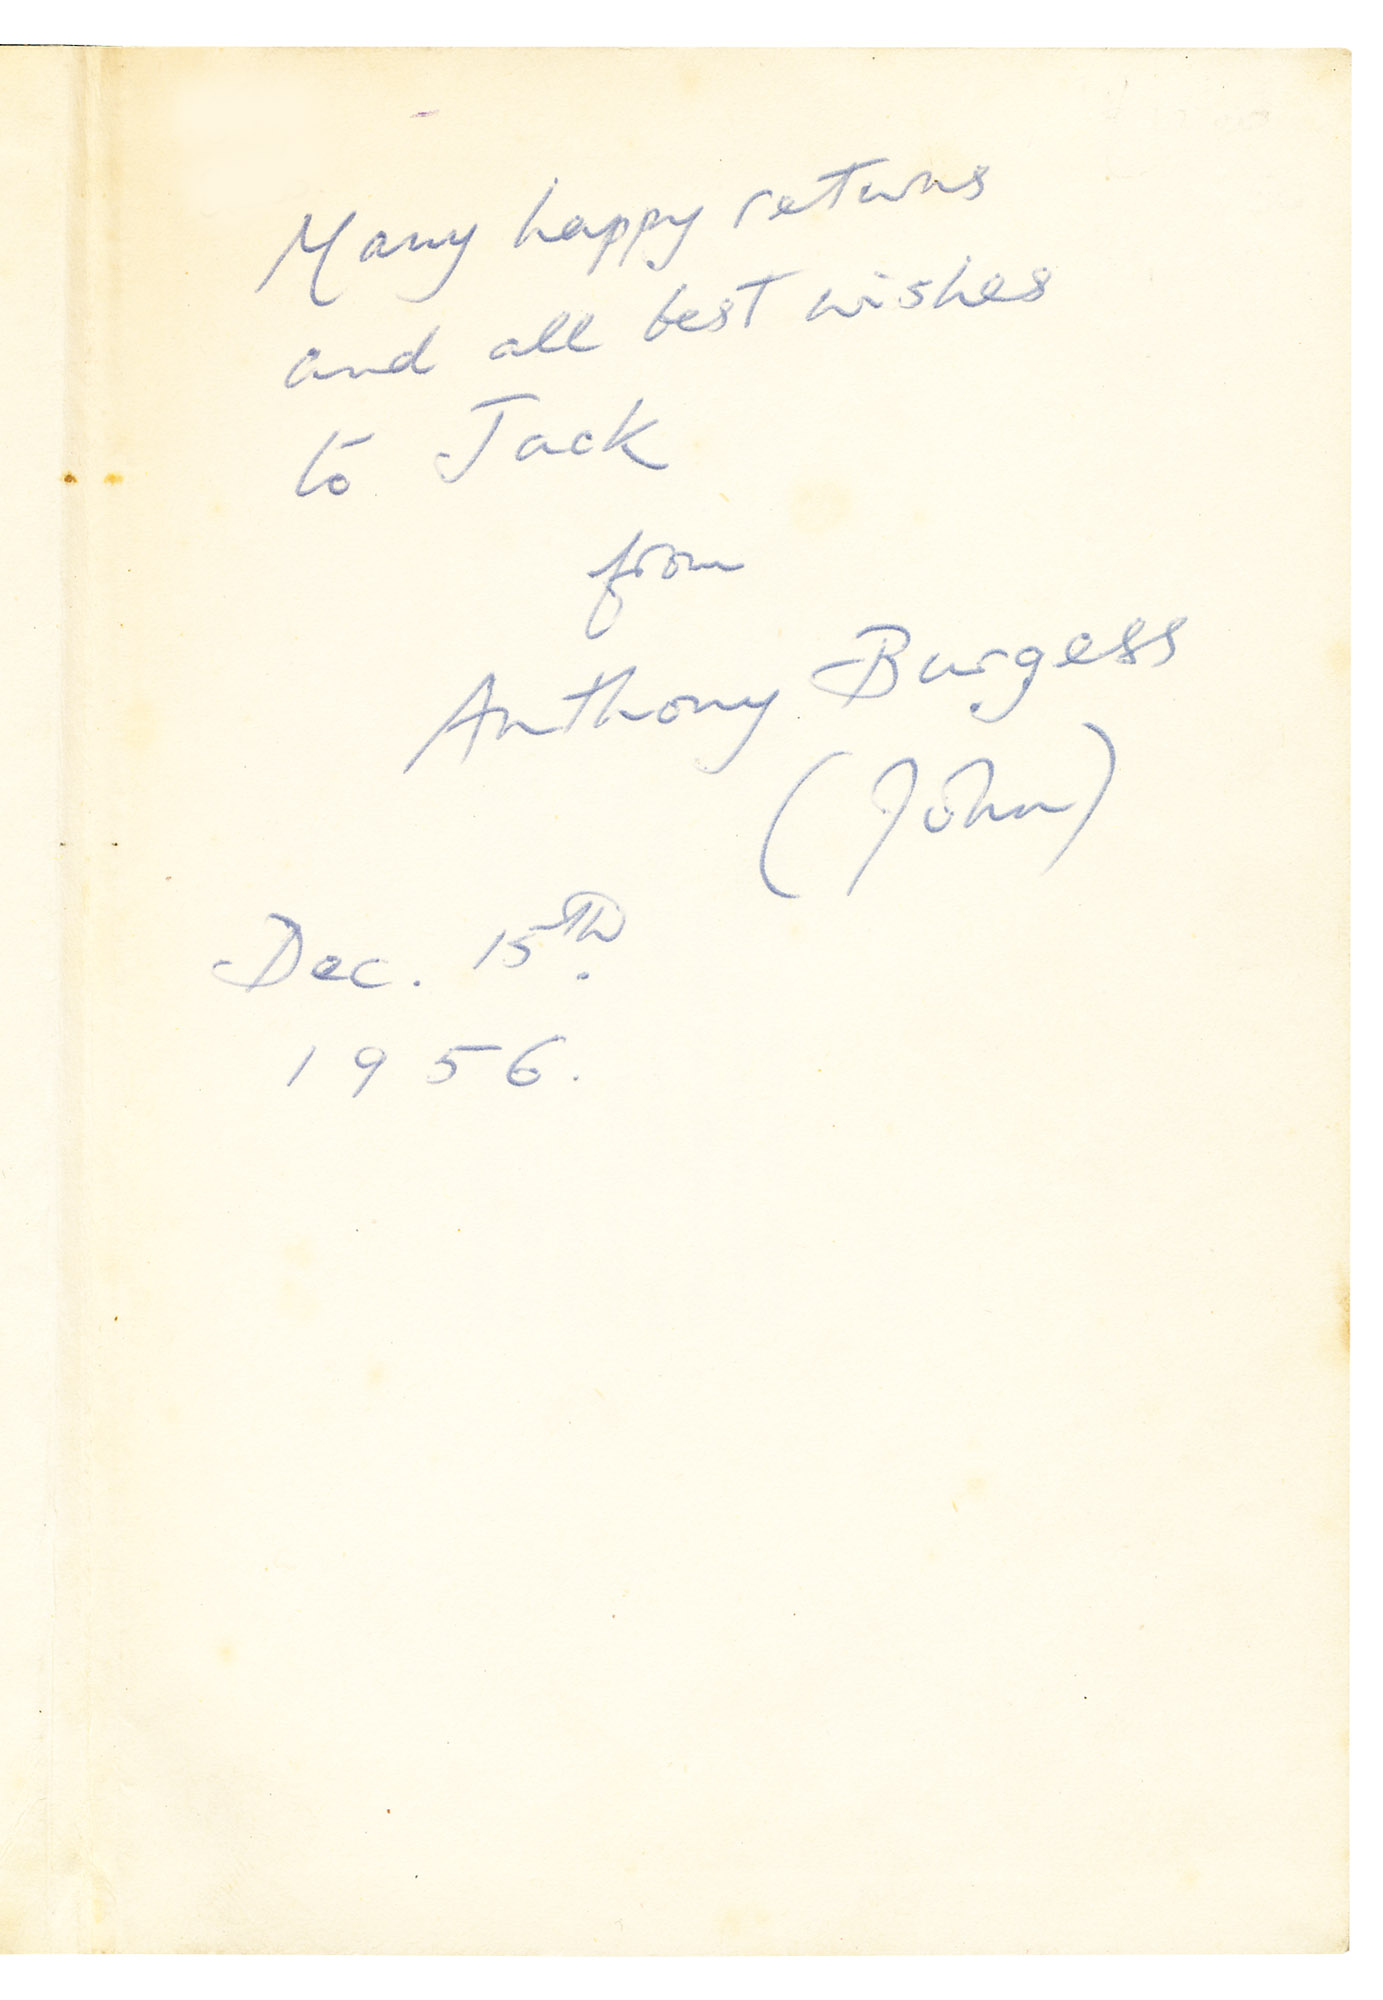 Many happy returns
and all best wishes
to Jack
from
Anthony Burgess
(John)
Dec. 15th.
1956.